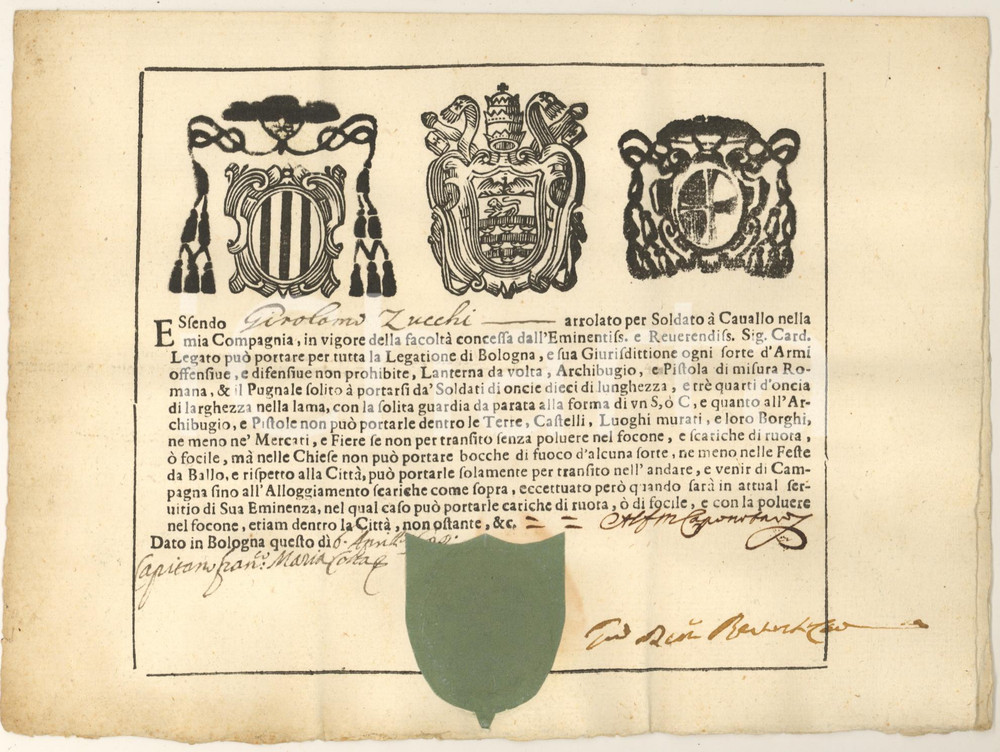 ESsendo Girolamo Zucchi arrolato per Soldato à Cauallo nella
mia Compagnia, in vigore della facoltà concessa dall'Eminentiss. e Reuerendiss. Sig. Card.
Legato può portare per tutta la Legatione di Bologna, e sua Giurisdittione ogni sorte d'Armi
offensiue, e difensiue non prohibite, Lanterna da volta, Archibugio, e Pistola di misura Ro-
mana, & il Pugnale solito à portarsi da' Soldati di oncie dieci di lunghezza, e trè quarti d'oncia
di larghezza nella lama, con la solita guardia da parata alla forma di vn S, ò C, e quanto all'Ar-
chibugio, e Pistole non può portarle dentro le Terre, Castelli, Luoghi murati, e loro Borghi,
ne meno ne' Mercati, e Fiere se non per transito senza poluere nel focone, e scariche di ruota,
ò focile, mà nelle Chiese non può portare bocche di fuoco d'alcuna sorte, ne meno nelle Feste
da Ballo, e rispetto alla Città, può portarle solamente per transito nell'andare, e venir di Cam-
pagna sino all'Alloggiamento scariche come sopra, eccettuato però quando sarà in attual ser-
uitio di Sua Eminenza, nel qual caso può portarle cariche di ruota, ò di focile, e con la poluere
nel focone, etiam dentro la Città, non ostante, &c.
Dato in Bologna questo dì 6.
Capitano Fran.co Maria